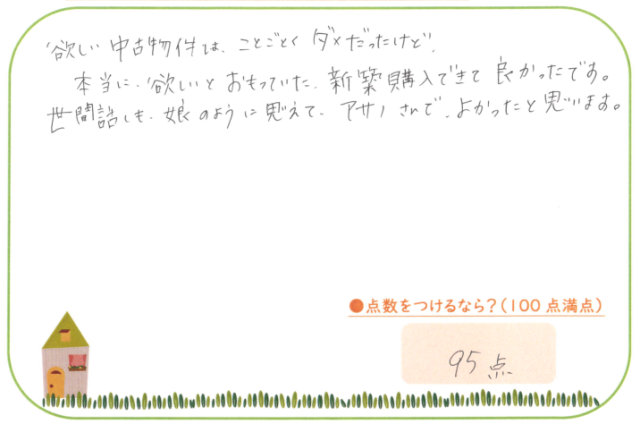 欲しい中古物件は、ことごとくダメだったけど、
本当に、欲しいとおもっていた、新築購入できて良かったです。
世間話しも、娘のように思えて、アサノさんで、よかったと思います。
●点数をつけるなら?(100点満点)
95点